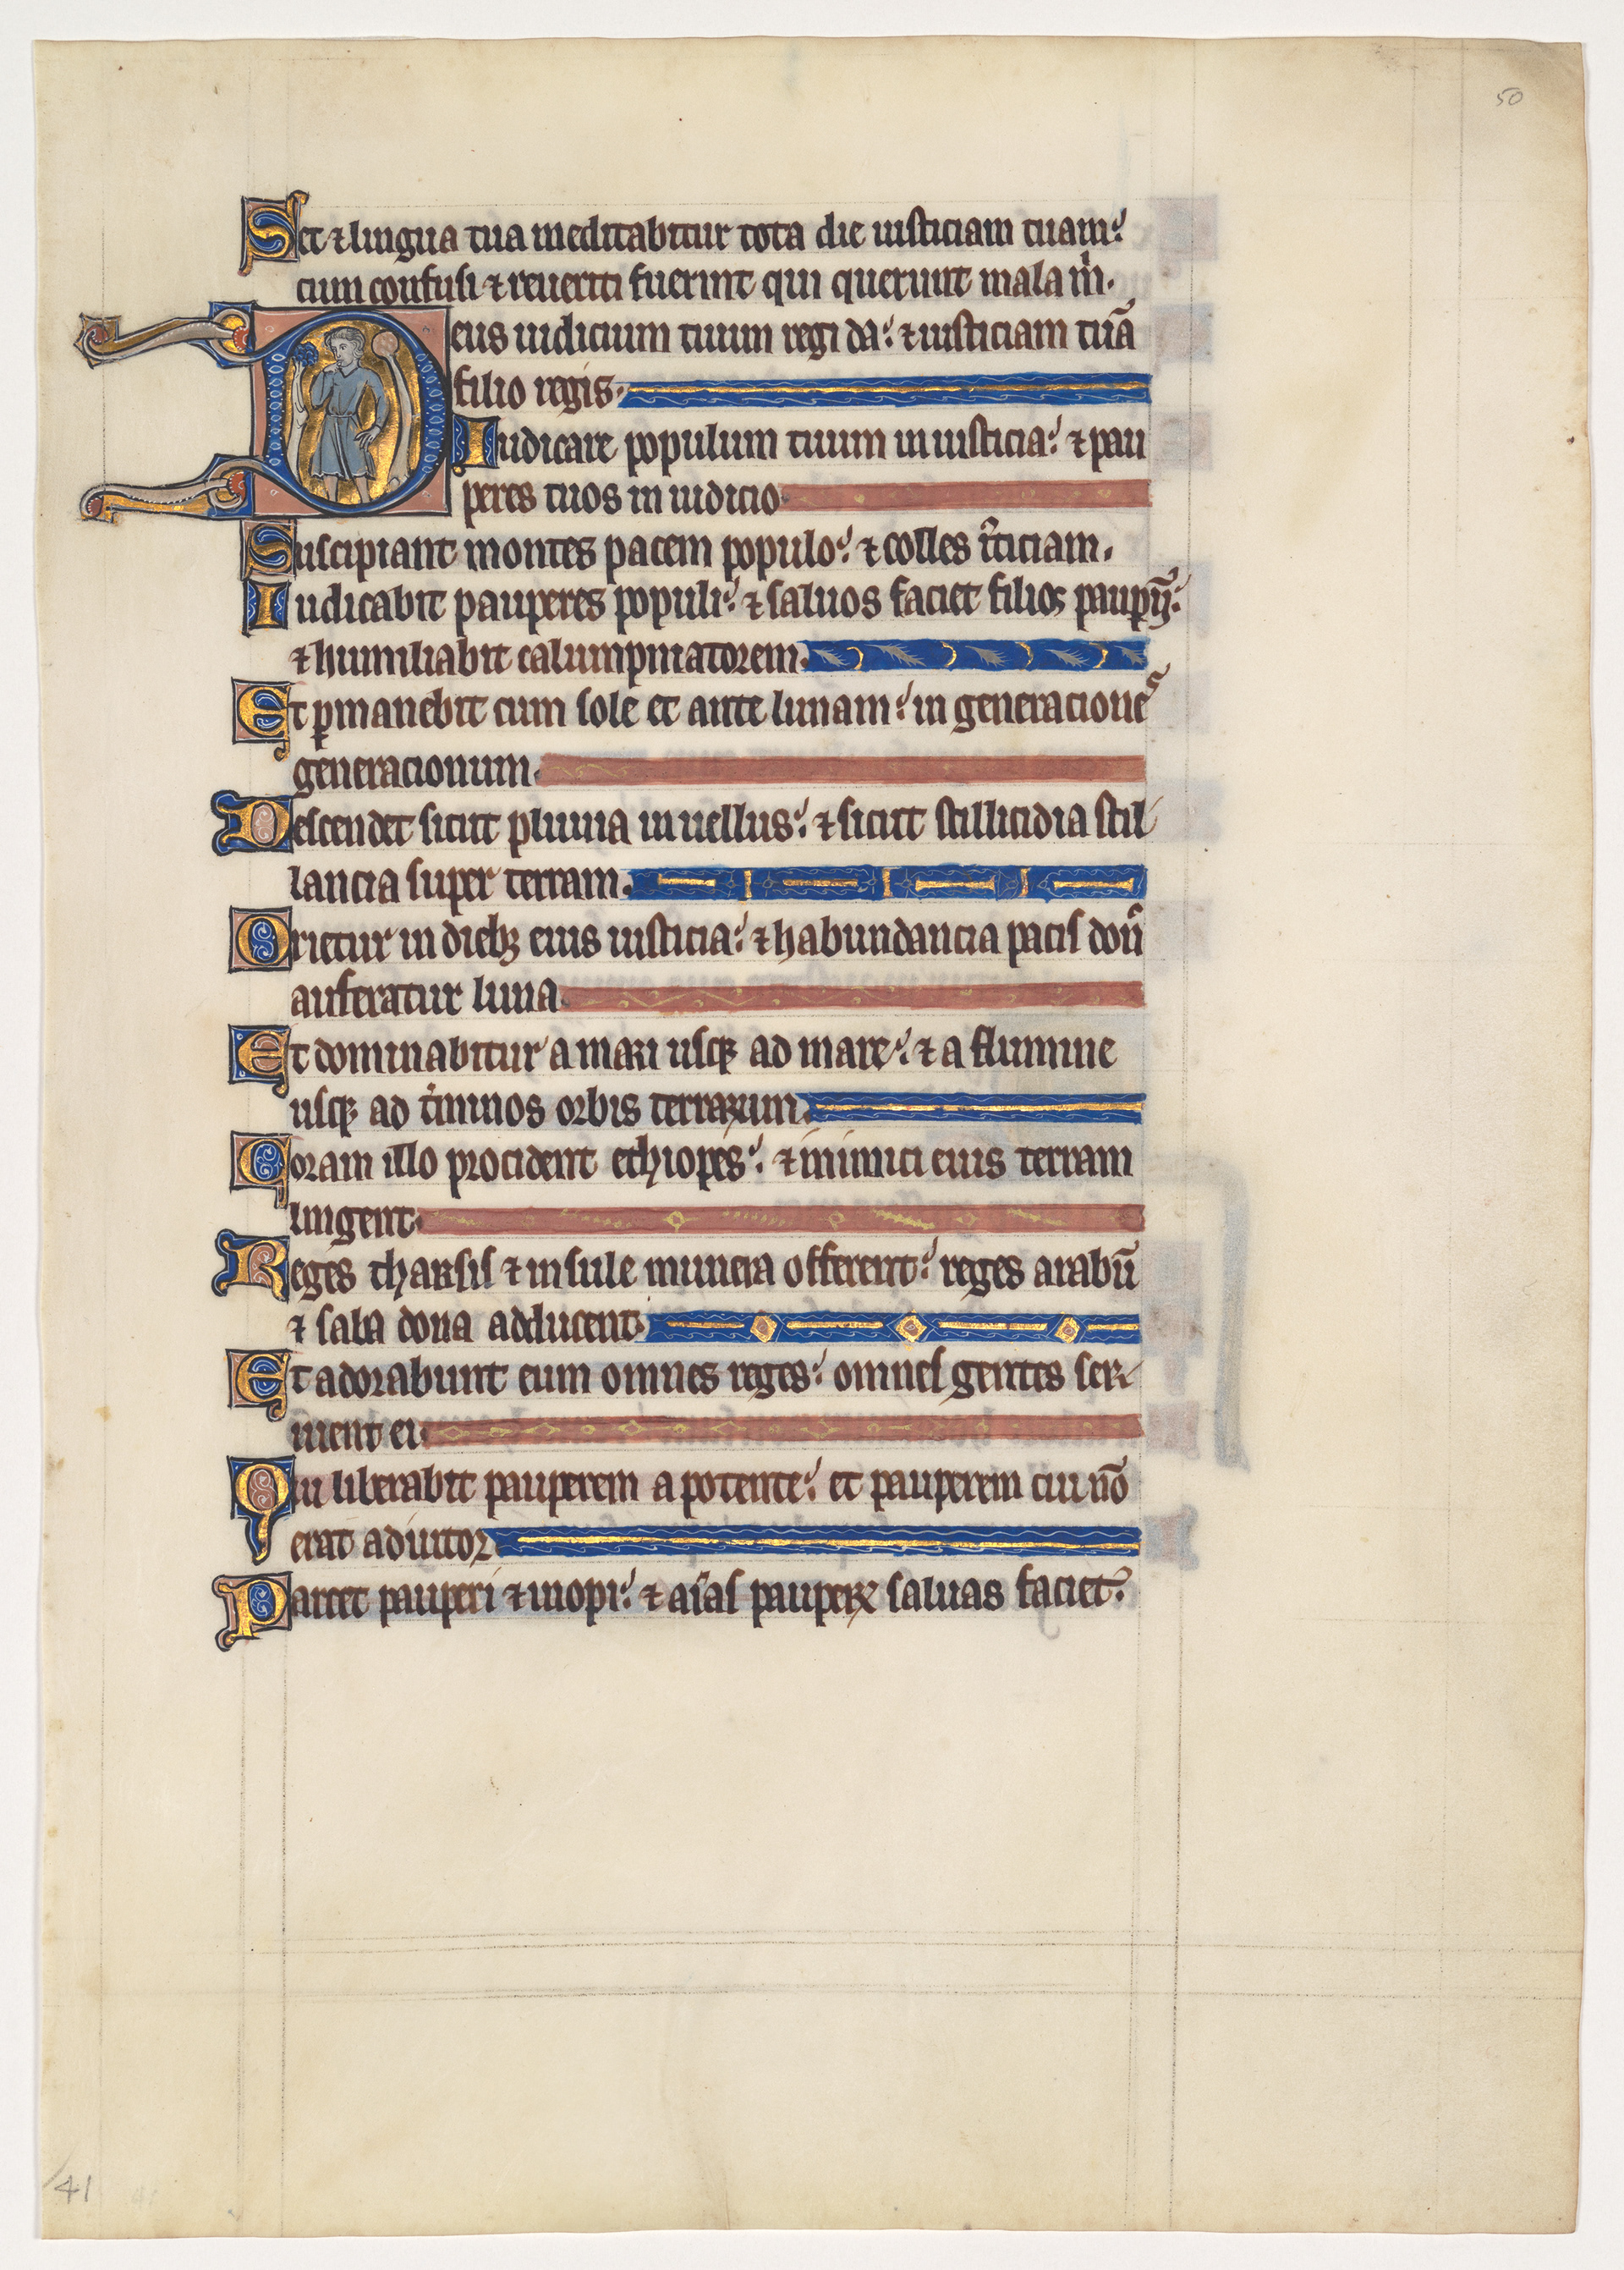 50
Set ⁊ lingua tua meditabitur tota die iusticiam tuam:
cum confusi ⁊ reueriti fuerint qui querunt mala m̍.
Deus iudicium tuum regi da: ⁊ iusticiam tuā
filio regis.
Iudicare populum tuum in iusticia: ⁊ pau
peres tuos in iudicio.
Suscipiant montes pacem populo: ⁊ colles iᷓticiam.
Iudicabit pauperes populi: ⁊ saluos faciet filios paupꝝ:
⁊ humiliabit calumpniatorem.
Et ꝑmanebit cum sole et ante lunam: in generacione
generacionum.
Descendet sicut pluuia in uellus: ⁊ sicut stillicidia stil
lancia super terram.
Orietur in diebꝫ eius iusticia: ⁊ habundancia pacis don̄
auferatur luna.
Et dominabitur a mari usqꝫ ad mare: ⁊ a flumine
usqꝫ ad t̍minos orbis terrarum.
Coram illo procident ethiopes: ⁊ inimici eius terram
lingent.
Reges tharsis ⁊ insule munera offerent: reges arabū
⁊ saba dona adducent.
Et adorabunt eum omnes reges: omnes gentes ser
uient ei.
Qui liberabit pauperem a potente: et pauperem cui nō
erat adiutor.
Parcet pauperi ⁊ inopi: ⁊ aīas pauperꝝ saluas faciet.
41